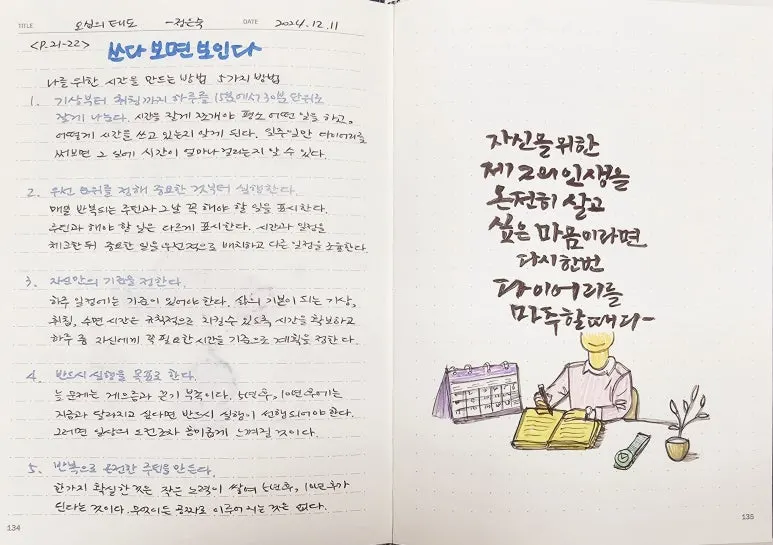 TITLE 오십의 태도 -정은숙 DATE 2024.12.11
<P.21-22>
쓰다 보면 보인다
나를 위한 시간을 만드는 방법 5가지 방법
1. 기상부터 취침까지 하루를 15분에서 30분 단위로
잘게 나눈다. 시간을 잘게 쪼개야 평소 어떤 일을 하고,
어떻게 시간을 쓰고 있는지 알게 된다. 일주일만 다이어리를
써보면 그 일에 시간이 얼마나 걸리는지 알 수 있다.
2. 우선 순위를 정해 중요한 것부터 실행한다.
매일 반복되는 루틴과 그날 꼭 해야 할 일을 표시한다.
루틴과 해야 할 일은 다르게 표시한다. 시간과 일정을
체크한 뒤 중요한 일을 우선적으로 배치하고 다른 일정을 조율한다.
3. 자신만의 기준을 정한다.
하루 일정에는 기준이 있어야 한다. 삶의 기본이 되는 기상,
취침, 수면 시간은 규칙적으로 지킬 수 있도록 시간을 확보하고
하루 중 자신에게 꼭 필요한 시간을 기준으로 계획을 정한다.
4. 반드시 실행을 목표로 한다.
늘 문제는 게으름과 끈기 부족이다. 5년 후, 10년 후에는
지금과 달라지고 싶다면 반드시 실행이 선행되어야 한다.
그러면 일상의 도전조차 흥미롭게 느껴질 것이다.
5. 반복으로 온전한 루틴을 만든다.
한가지 확실한 것은 작은 노력이 쌓여 5년 후, 10년 후가
된다는 것이다. 무엇이든 공짜로 이루어지는 것은 없다.
134
자신을 위한
제2의 인생을
온전히 살고
싶은 마음이라면
다시 한번
다이어리를
마주할 때다-
135